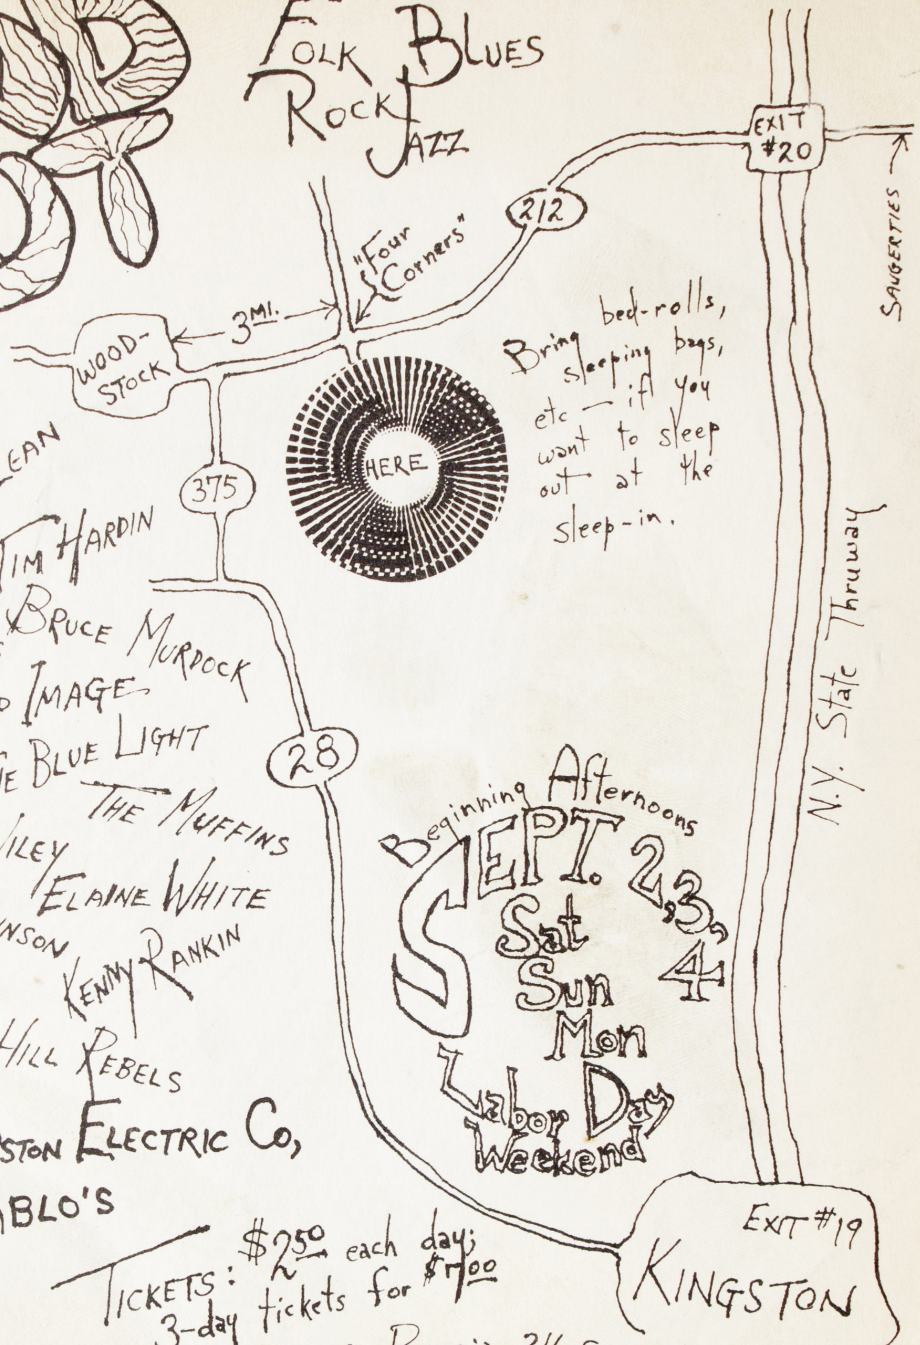 FOLK BLUES
ROCK JAZZ
EXIT
#20
SAUGERTIES
212
"Four
Corners"
3 MI.
WOOD-
STOCK
HERE
Bring bed-rolls,
sleeping bags,
etc — if you
want to sleep
out at the
sleep-in.
375
N.Y. State Thruway
LEAN
TIM HARDIN
BRUCE MURDOCK
IMAGE
BLUE LIGHT
28
THE MUFFINS
ELAINE WHITE
NSON
KENNY RANKIN
HILL REBELS
STON ELECTRIC CO,
ABLO'S
Beginning Afternoons
SEPT. 2,3,4
Sat
Sun
Mon
Labor Day
Weekend
EXIT #19
KINGSTON
TICKETS: $2.50 each day;
3-day tickets for $7.00